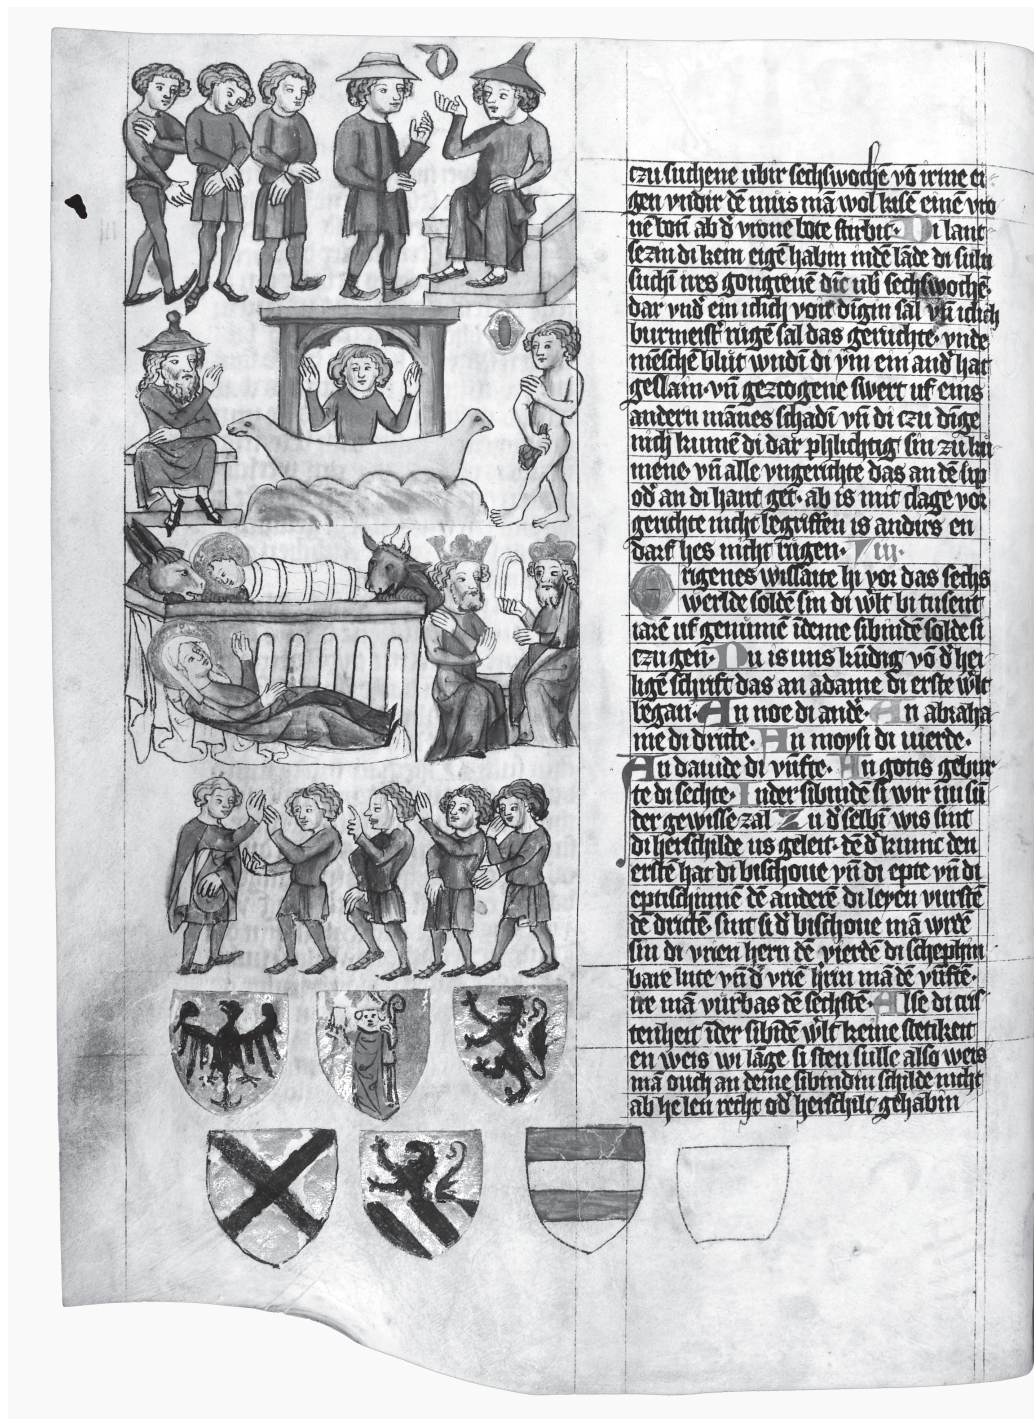 czu suchene ubir sechswochē vō irme ei
gen vndir dē mus mā wol kisē einē vro
nē botī ab d' vrone bote stirbit· Di lant
sezin di kein eigē habin indē lāde di suln
suchī irs gougreuē dīc ub' sechswochē·
dar vnd' ein iclich voit dīgin sal vn̄ iclich
burmeist' rugē sal das geruchte· vnde
mēschē blut wndī di ym ein and' hat
geslain· vn̄ gezcogene swert uf eins
andern mānes schadī vn̄ di czu dīge
nich kumē di dar phlichtig sin zu ku
mene· vn̄ alle vngerichte das an dē lip
od' an di hant get· ab is mit clage vor
gerichte nicht begriffen is andirs en
darf hes nicht rugen· III·
Origenes wissaite hi vor das sechs
werlde soldē sin di w'lt bi tusent
iarē uf genumē īdeme sibindē solde si
czu gen· Nu is uns kūdig vō d' hei
ligē schrift das an adame di erste w'lt
began· An noe di and'e· An abraha
me di dritte· An moysi di vierde·
An dauide di vūfte· An gotis gebur
te di sechte· Inder sibindē si wir nu sū
der gewisse zal Zu d' selbī wis sint
di herschilde us geleit· dē d' kunic den
erstē hat di bischoue vn̄ di epte vn̄ di
eptischinnē dē anderē di leyen vurstē
dē drittē· sint si d' bischoue mā wrdē
sin di vrien hern dē vierdē di schephin
bare lute vn̄ d' vriē h'rin mā dē vūftē·
ire mā vurbas dē sechstē· Alse di cris
tenheit īder sibīdē w'lt keine stetikeit
en weis wi lāge si sten sulle also weis
mā ouch an deme sibindin schilde nicht
ab he len recht od' herschilt gehabin